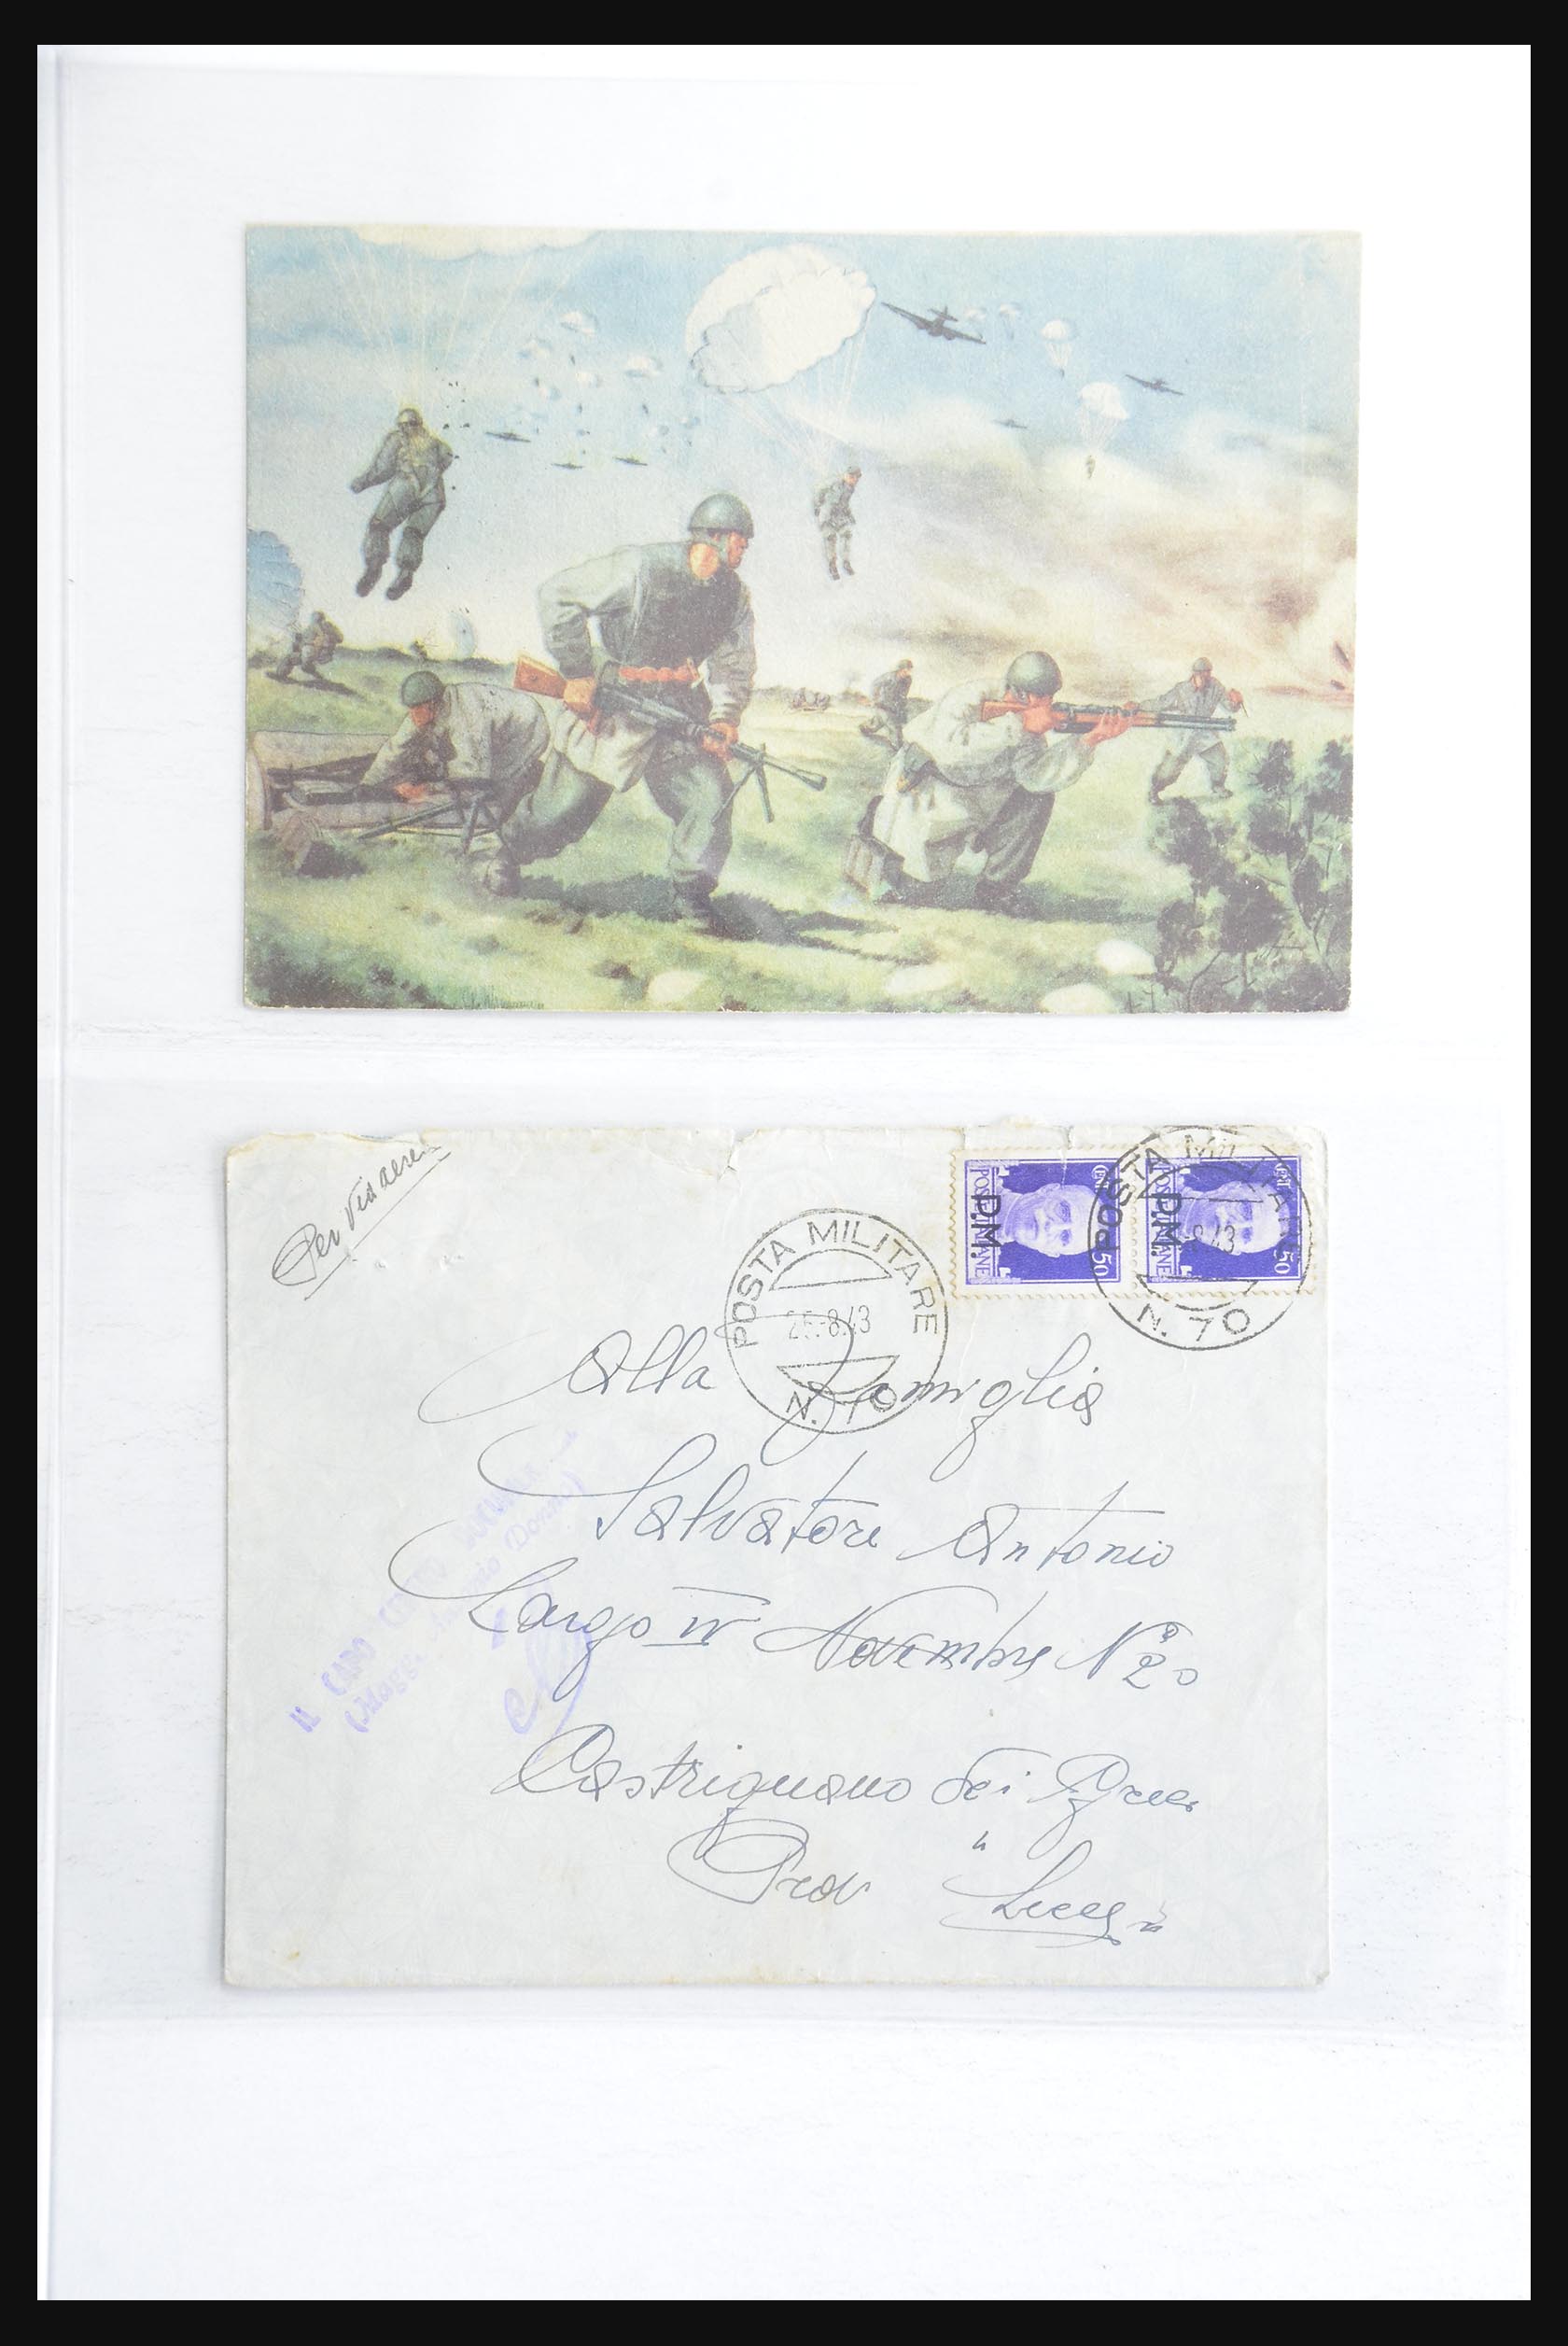 Per via aerea
POSTE ITALIANE
P.M.
CENT 50
POSTE ITALIANE
P.M.
CENT 50
POSTA MILITARE
25.8.43
N. 70
POSTA MILITARE
8.43
N. 70
Alla Famiglia
Salvatore Antonio
Largo IV Novembre N° 20
Castrignano dei Greci
Prov " Lecce
IL CAPO
(Magg.